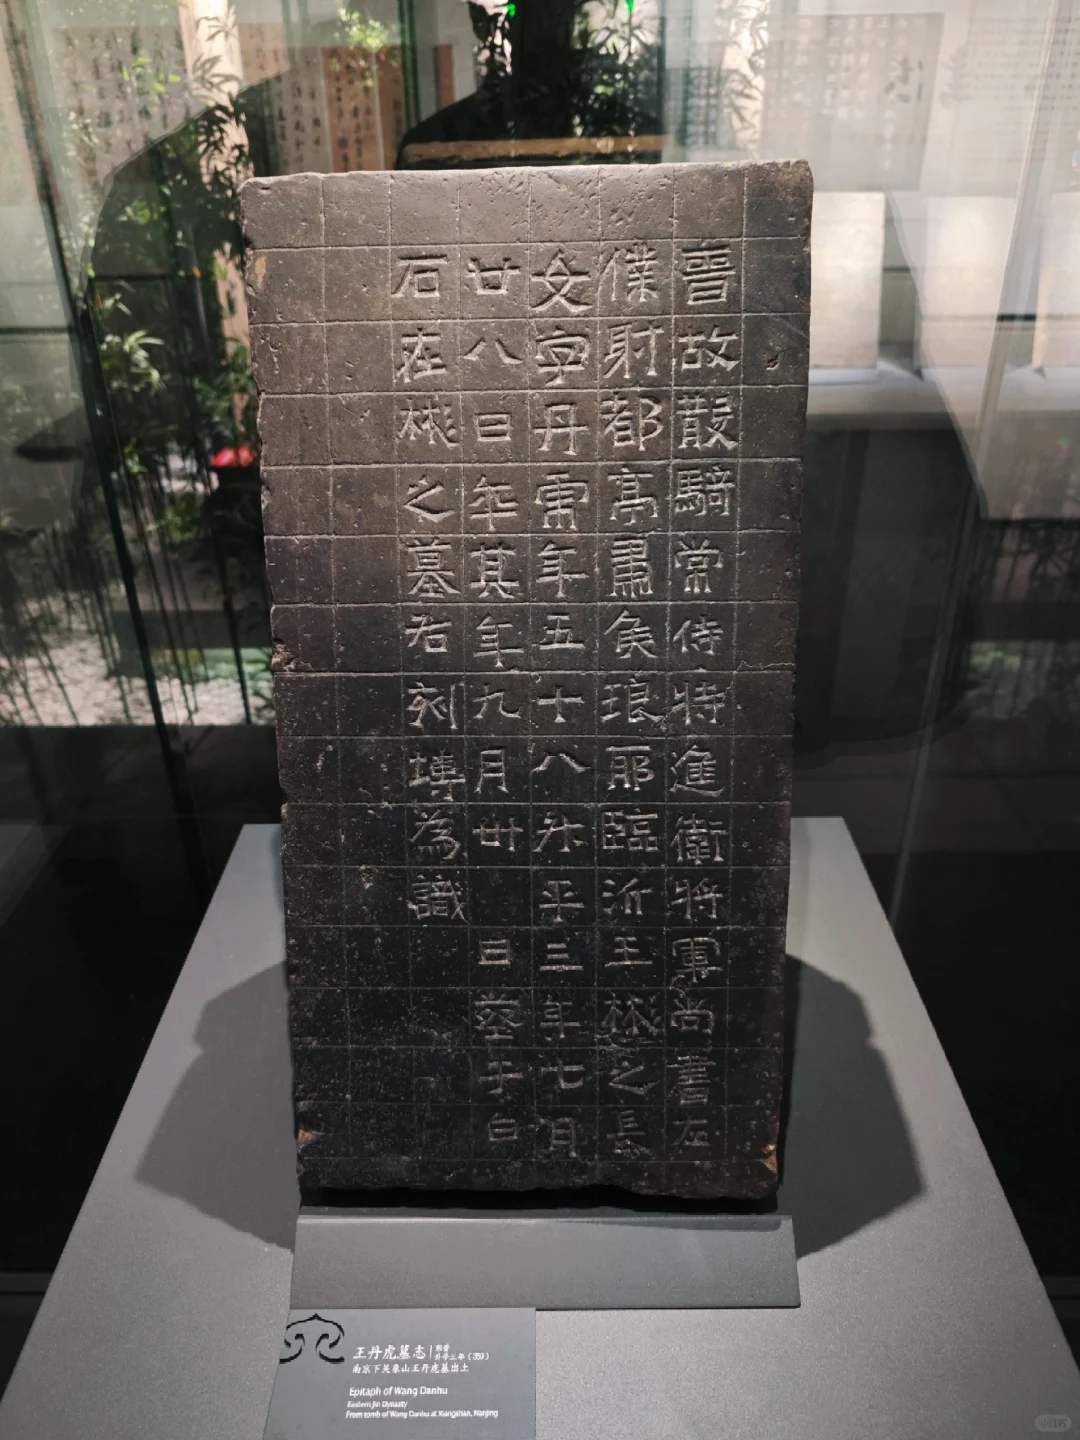 晉故散騎常侍特進衛將軍尚書左
僕射都亭肅侯琅耶臨沂王彬之長
女字丹虎年五十八升平三年七月
廿八日卒其年九月卅日葬于白
石在彬之墓右刻塼為識
王丹虎墓志 東晉 升平三年（359）
南京下关象山王丹虎墓出土
Epitaph of Wang Danhu
Eastern Jin Dynasty
From tomb of Wang Danhu at Xiangshan, Nanjing
小红书